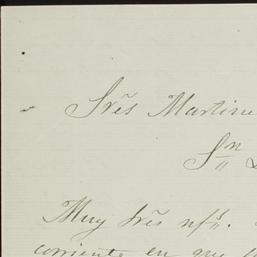 Srẽs Martine
Sn
Muy Srẽs nrs.
corriente en que